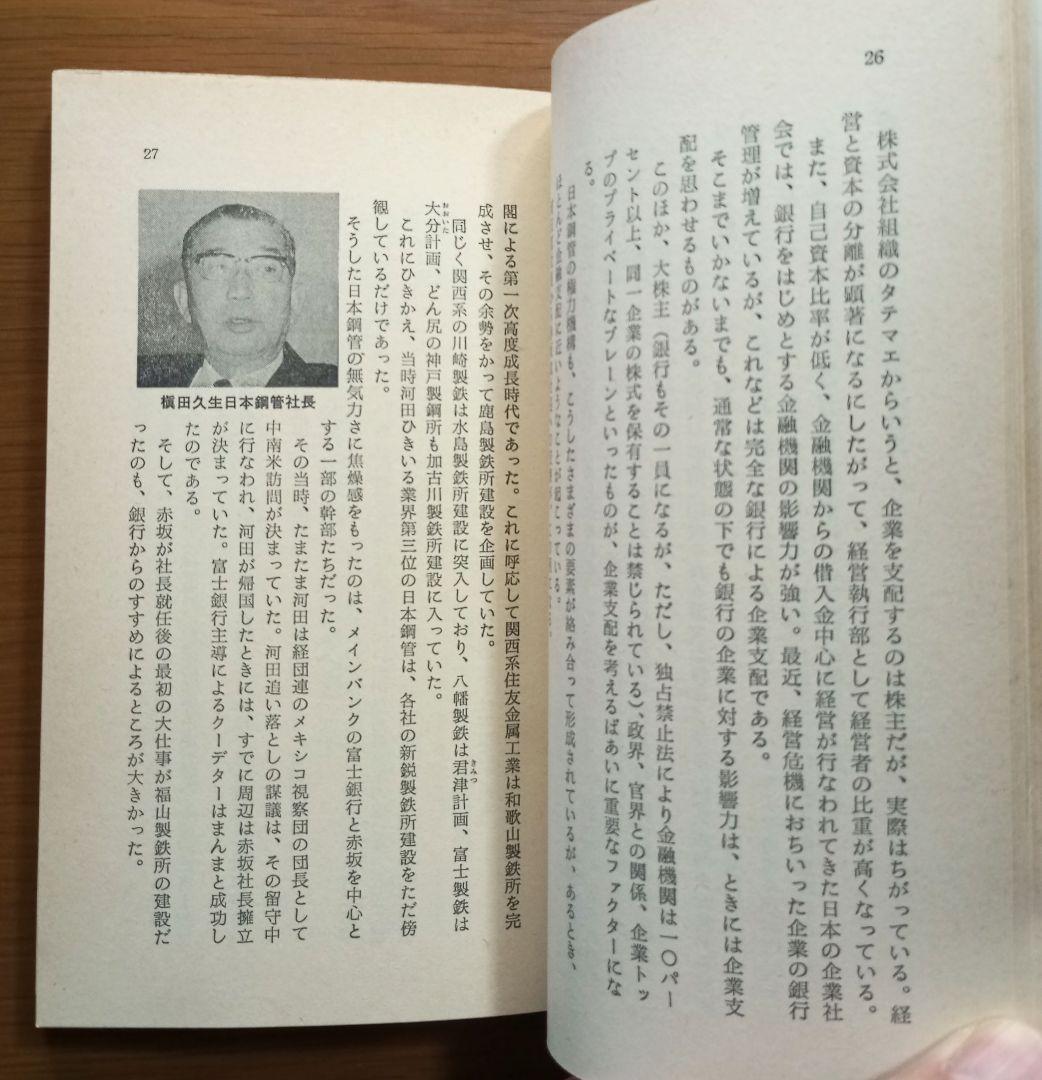 26
株式会社組織のタテマエからいうと、企業を支配するのは株主だが、実際はちがっている。経
営と資本の分離が顕著になるにしたがって、経営執行部として経営者の比重が高くなっている。
また、自己資本比率が低く、金融機関からの借入金中心に経営が行なわれてきた日本の企業社
会では、銀行をはじめとする金融機関の影響力が強い。最近、経営危機におちいった企業の銀行
管理が増えているが、これなどは完全な銀行による企業支配である。
そこまでいかないまでも、通常な状態の下でも銀行の企業に対する影響力は、ときには企業支
配を思わせるものがある。
このほか、大株主（銀行もその一員になるが、ただし、独占禁止法により金融機関は一〇パー
セント以上、同一企業の株式を保有することは禁じられている）、政界、官界との関係、企業トッ
プのプライベートなブレーンといったものが、企業支配を考えるばあいに重要なファクターにな
る。
日本鋼管の権力機構も、こうしたさまざまの要素が絡み合って形成されているが、あるとき、
ほとんど金融支配に近いようなことが起こっている。
27
閣による第一次高度成長時代であった。これに呼応して関西系住友金属工業は和歌山製鉄所を完
成させ、その余勢をかって鹿島製鉄所建設を企画していた。
同じく関西系の川崎製鉄は水島製鉄所建設に突入しており、八幡製鉄は君津計画、富士製鉄は
きみつ
大分計画、どん尻の神戸製鋼所も加古川製鉄所建設に入っていた。
おおいた
これにひきかえ、当時河田ひきいる業界第三位の日本鋼管は、各社の新鋭製鉄所建設をただ傍
観しているだけであった。
そうした日本鋼管の無気力さに焦燥感をもったのは、メインバンクの富士銀行と赤坂を中心と
する一部の幹部たちだった。
その当時、たまたま河田は経団連のメキシコ視察団の団長として
中南米訪問が決まっていた。河田追い落としの謀議は、その留守中
に行なわれ、河田が帰国したときには、すでに周辺は赤坂社長擁立
が決まっていた。富士銀行主導によるクーデターはまんまと成功し
たのである。
そして、赤坂が社長就任後の最初の大仕事が福山製鉄所の建設だ
ったのも、銀行からのすすめによるところが大きかった。
槇田久生日本鋼管社長